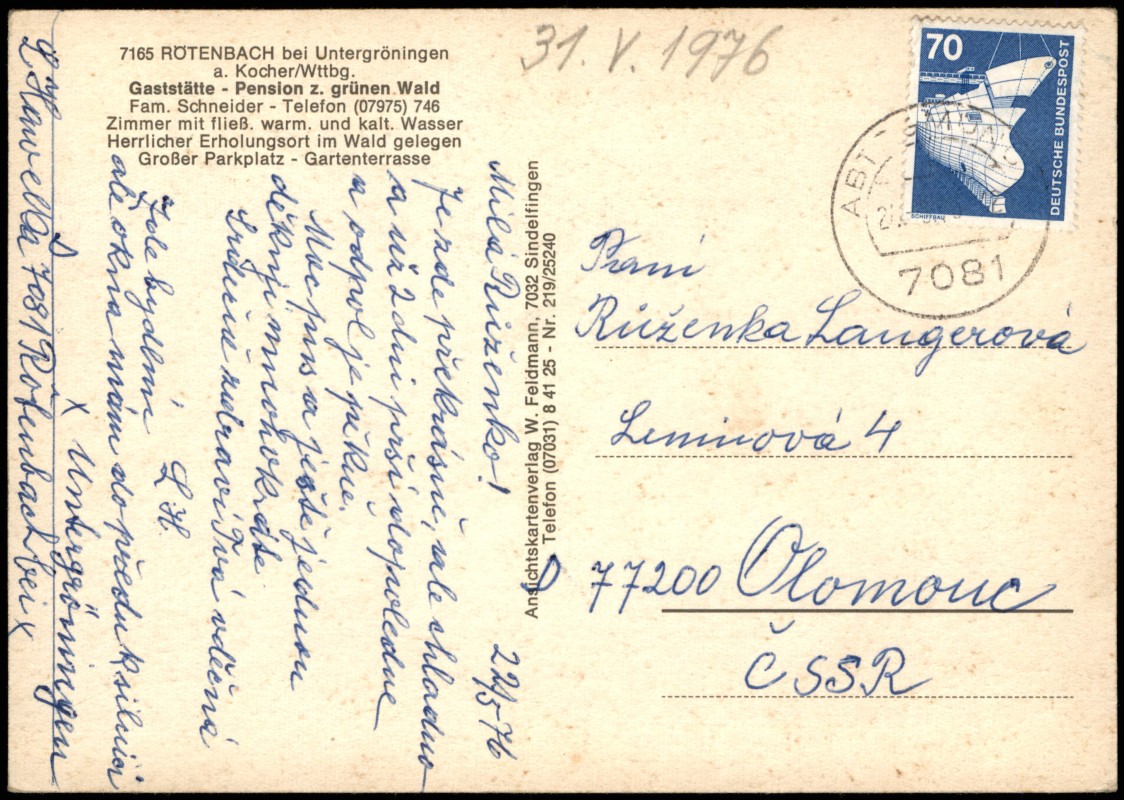 7165 RÖTENBACH bei Untergröningen
a. Kocher/Wttbg.
Gaststätte - Pension z. grünen Wald
Fam. Schneider - Telefon (07975) 746
Zimmer mit fließ. warm. und kalt. Wasser
Herrlicher Erholungsort im Wald gelegen
Großer Parkplatz - Gartenterrasse
31. V. 1976
70
DEUTSCHE BUNDESPOST
SCHIFFBAU
7081
22/5 76
Milá Růženko!
Je zde překrásně, ale chladno
a už 2 dni prší dopoledne
a odpol je pěkně.
Moc pus a ještě jednou
děkuji mnohokráte
Srdečně zdraví Tvá vděčná
L H.
Zde bydlím
ale okna mám do předu k silnici
7081 Rötenbach bei x
x Untergröningen
Ansichtskartenverlag W. Feldmann, 7032 Sindelfingen
Telefon (07031) 8 41 25 - Nr. 219/25240
Paní
Růženka Langerová
Leninová 4
77200 Olomouc
ČSSR